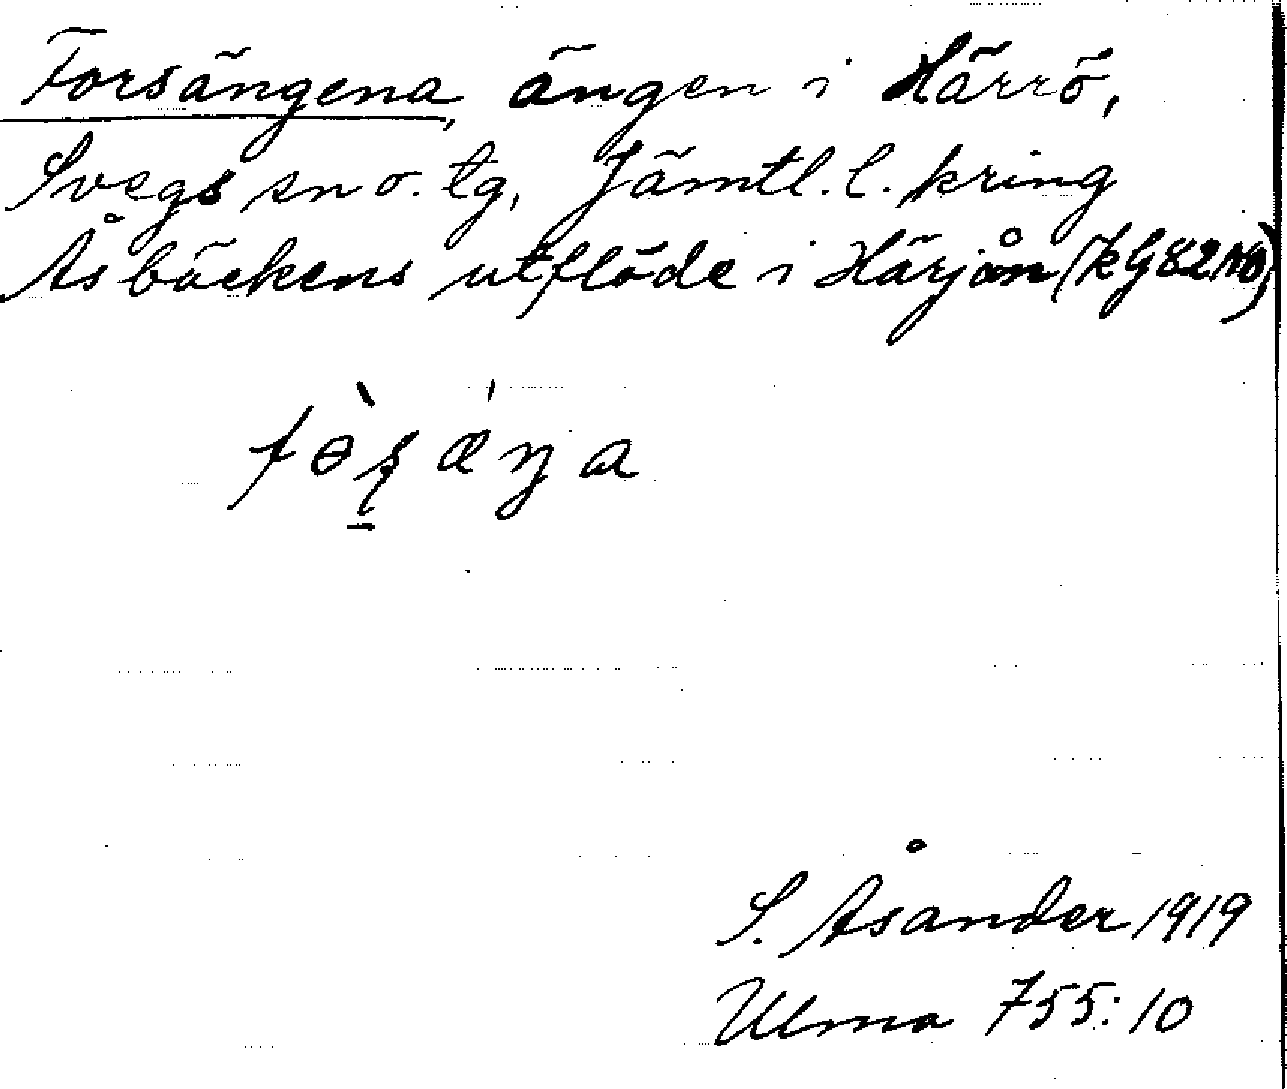 Forsängena, ängen i Härrö,
Svegs sn o. tg, Jämtl. l. kring
Åsbäckens utflöde i Härjån (kg 82 NO)
fɵ̀ʂǽŋa
S. Åsander 1919
Ulma 755:10